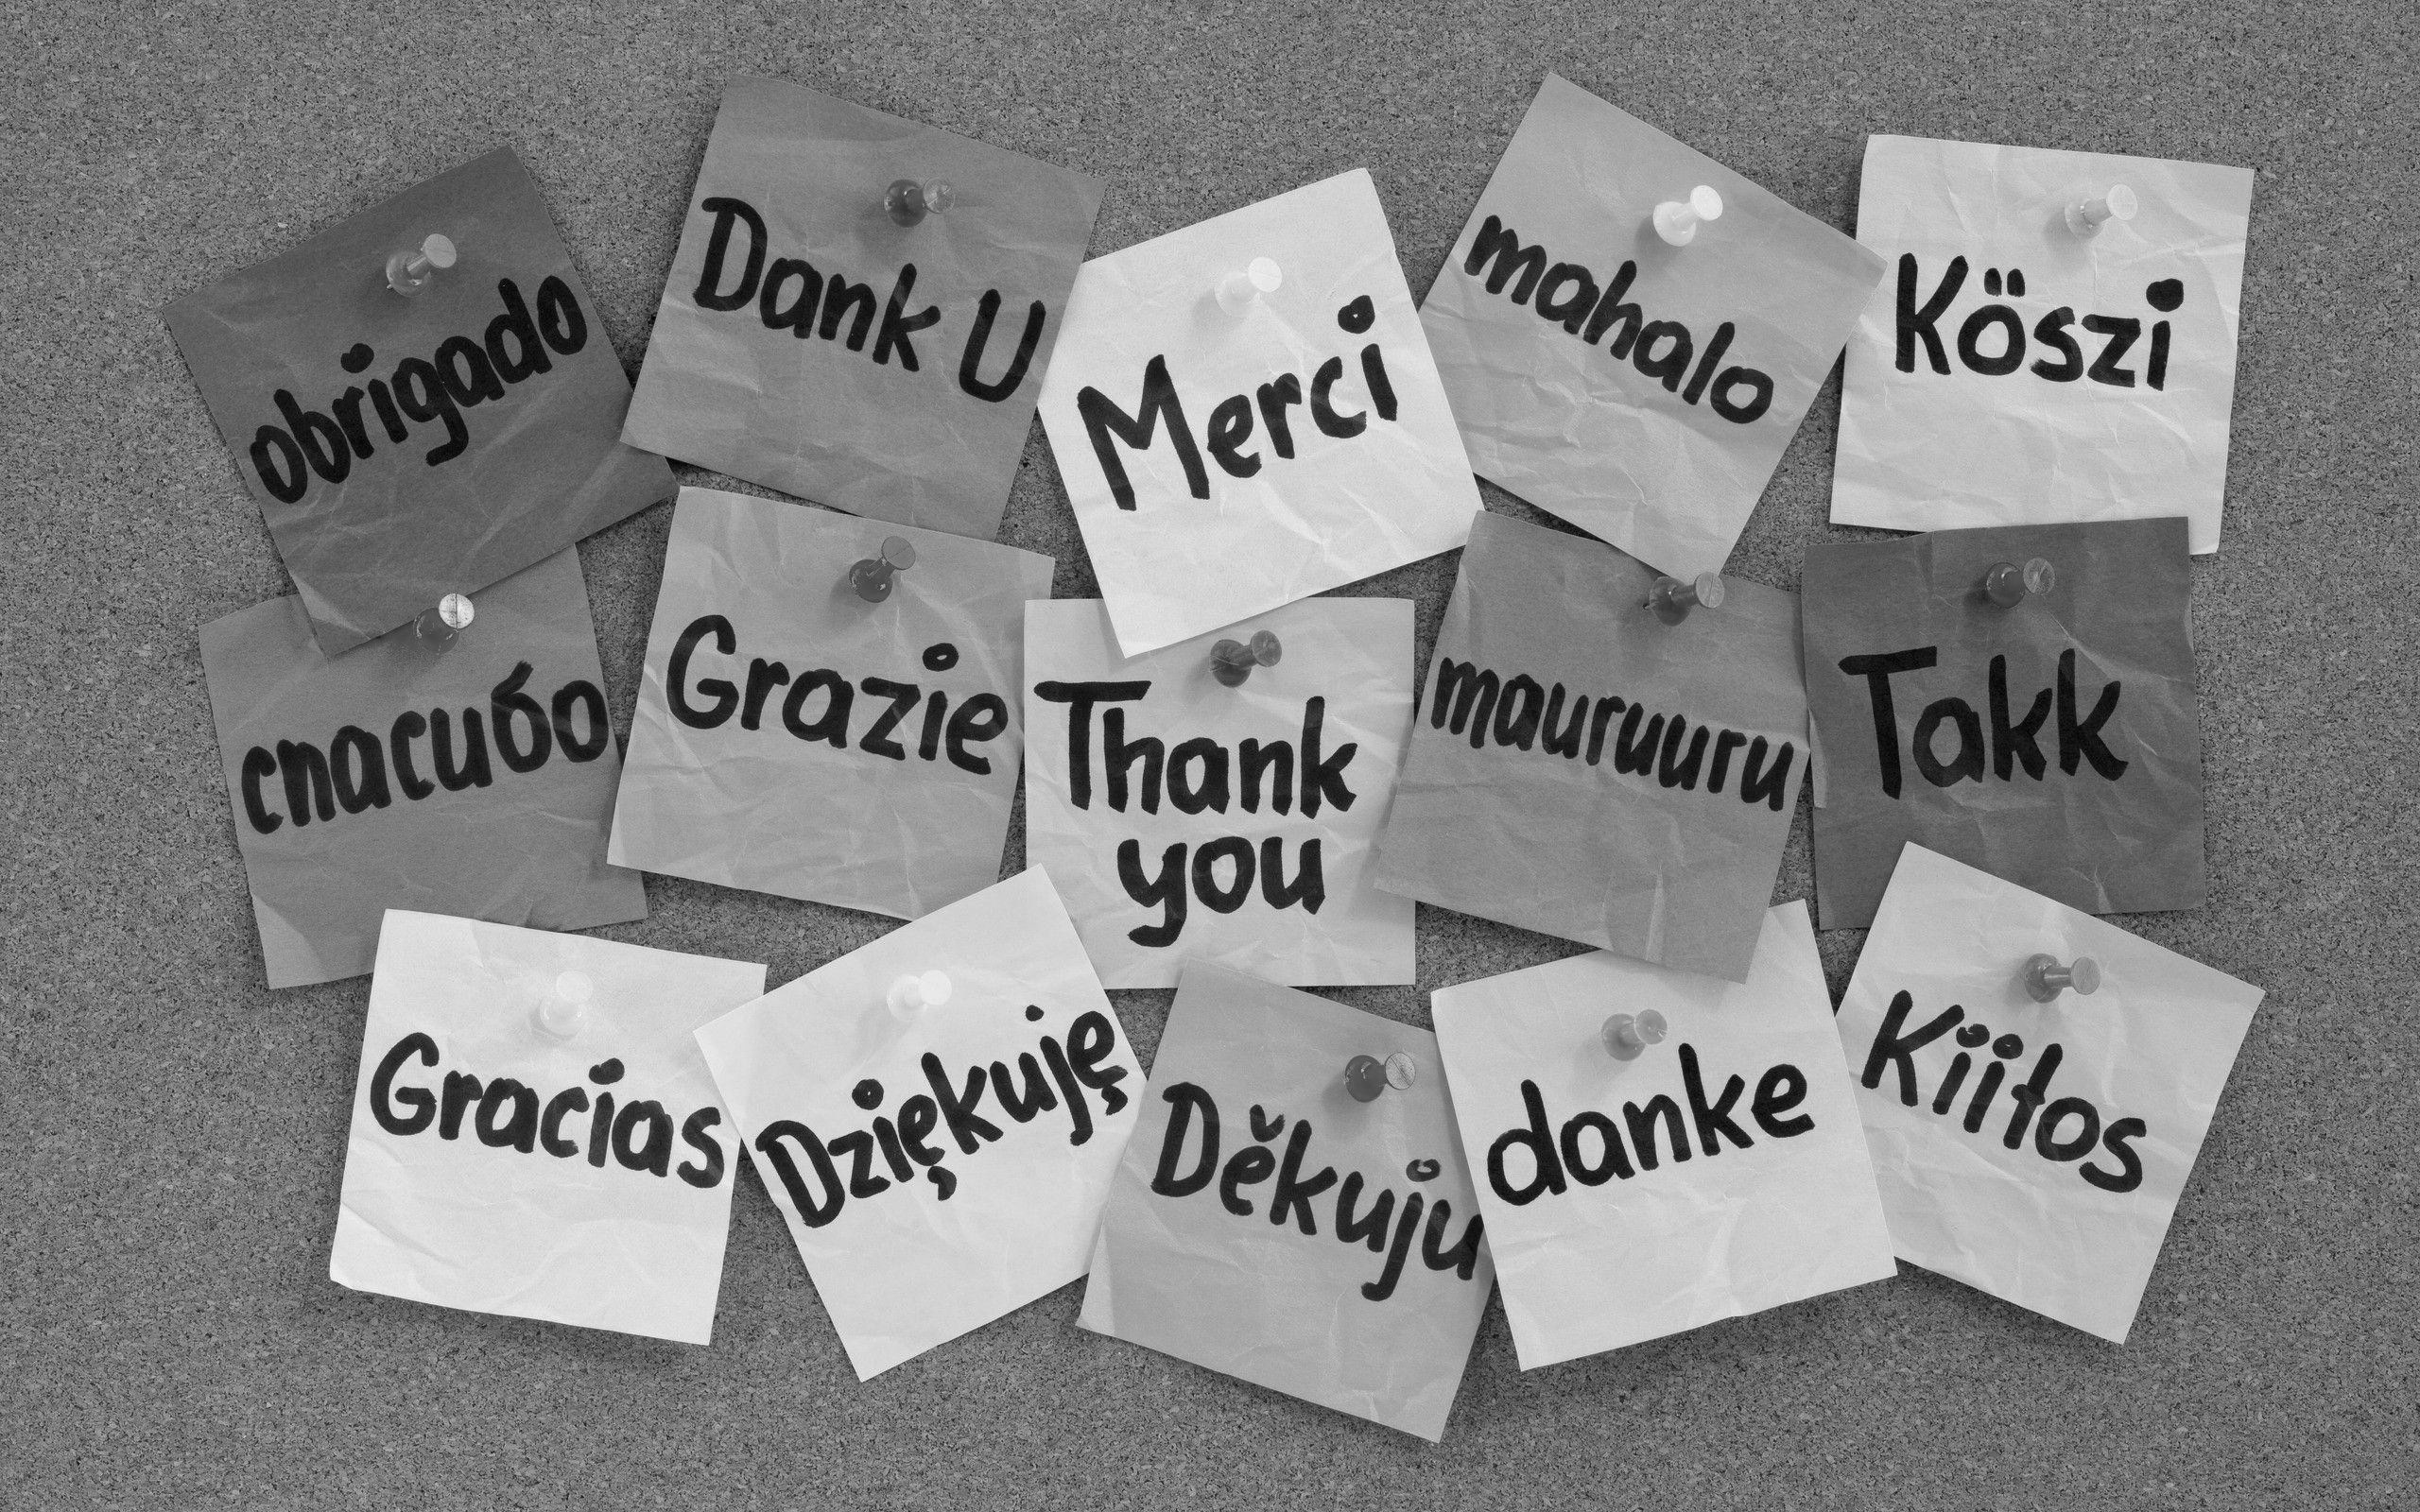 obrigado
Dank U
Merci
mahalo
Köszi
спасибо
Grazie
Thank
you
mauruuru
Takk
Gracias
Dziękuję
Děkuju
danke
Kiitos